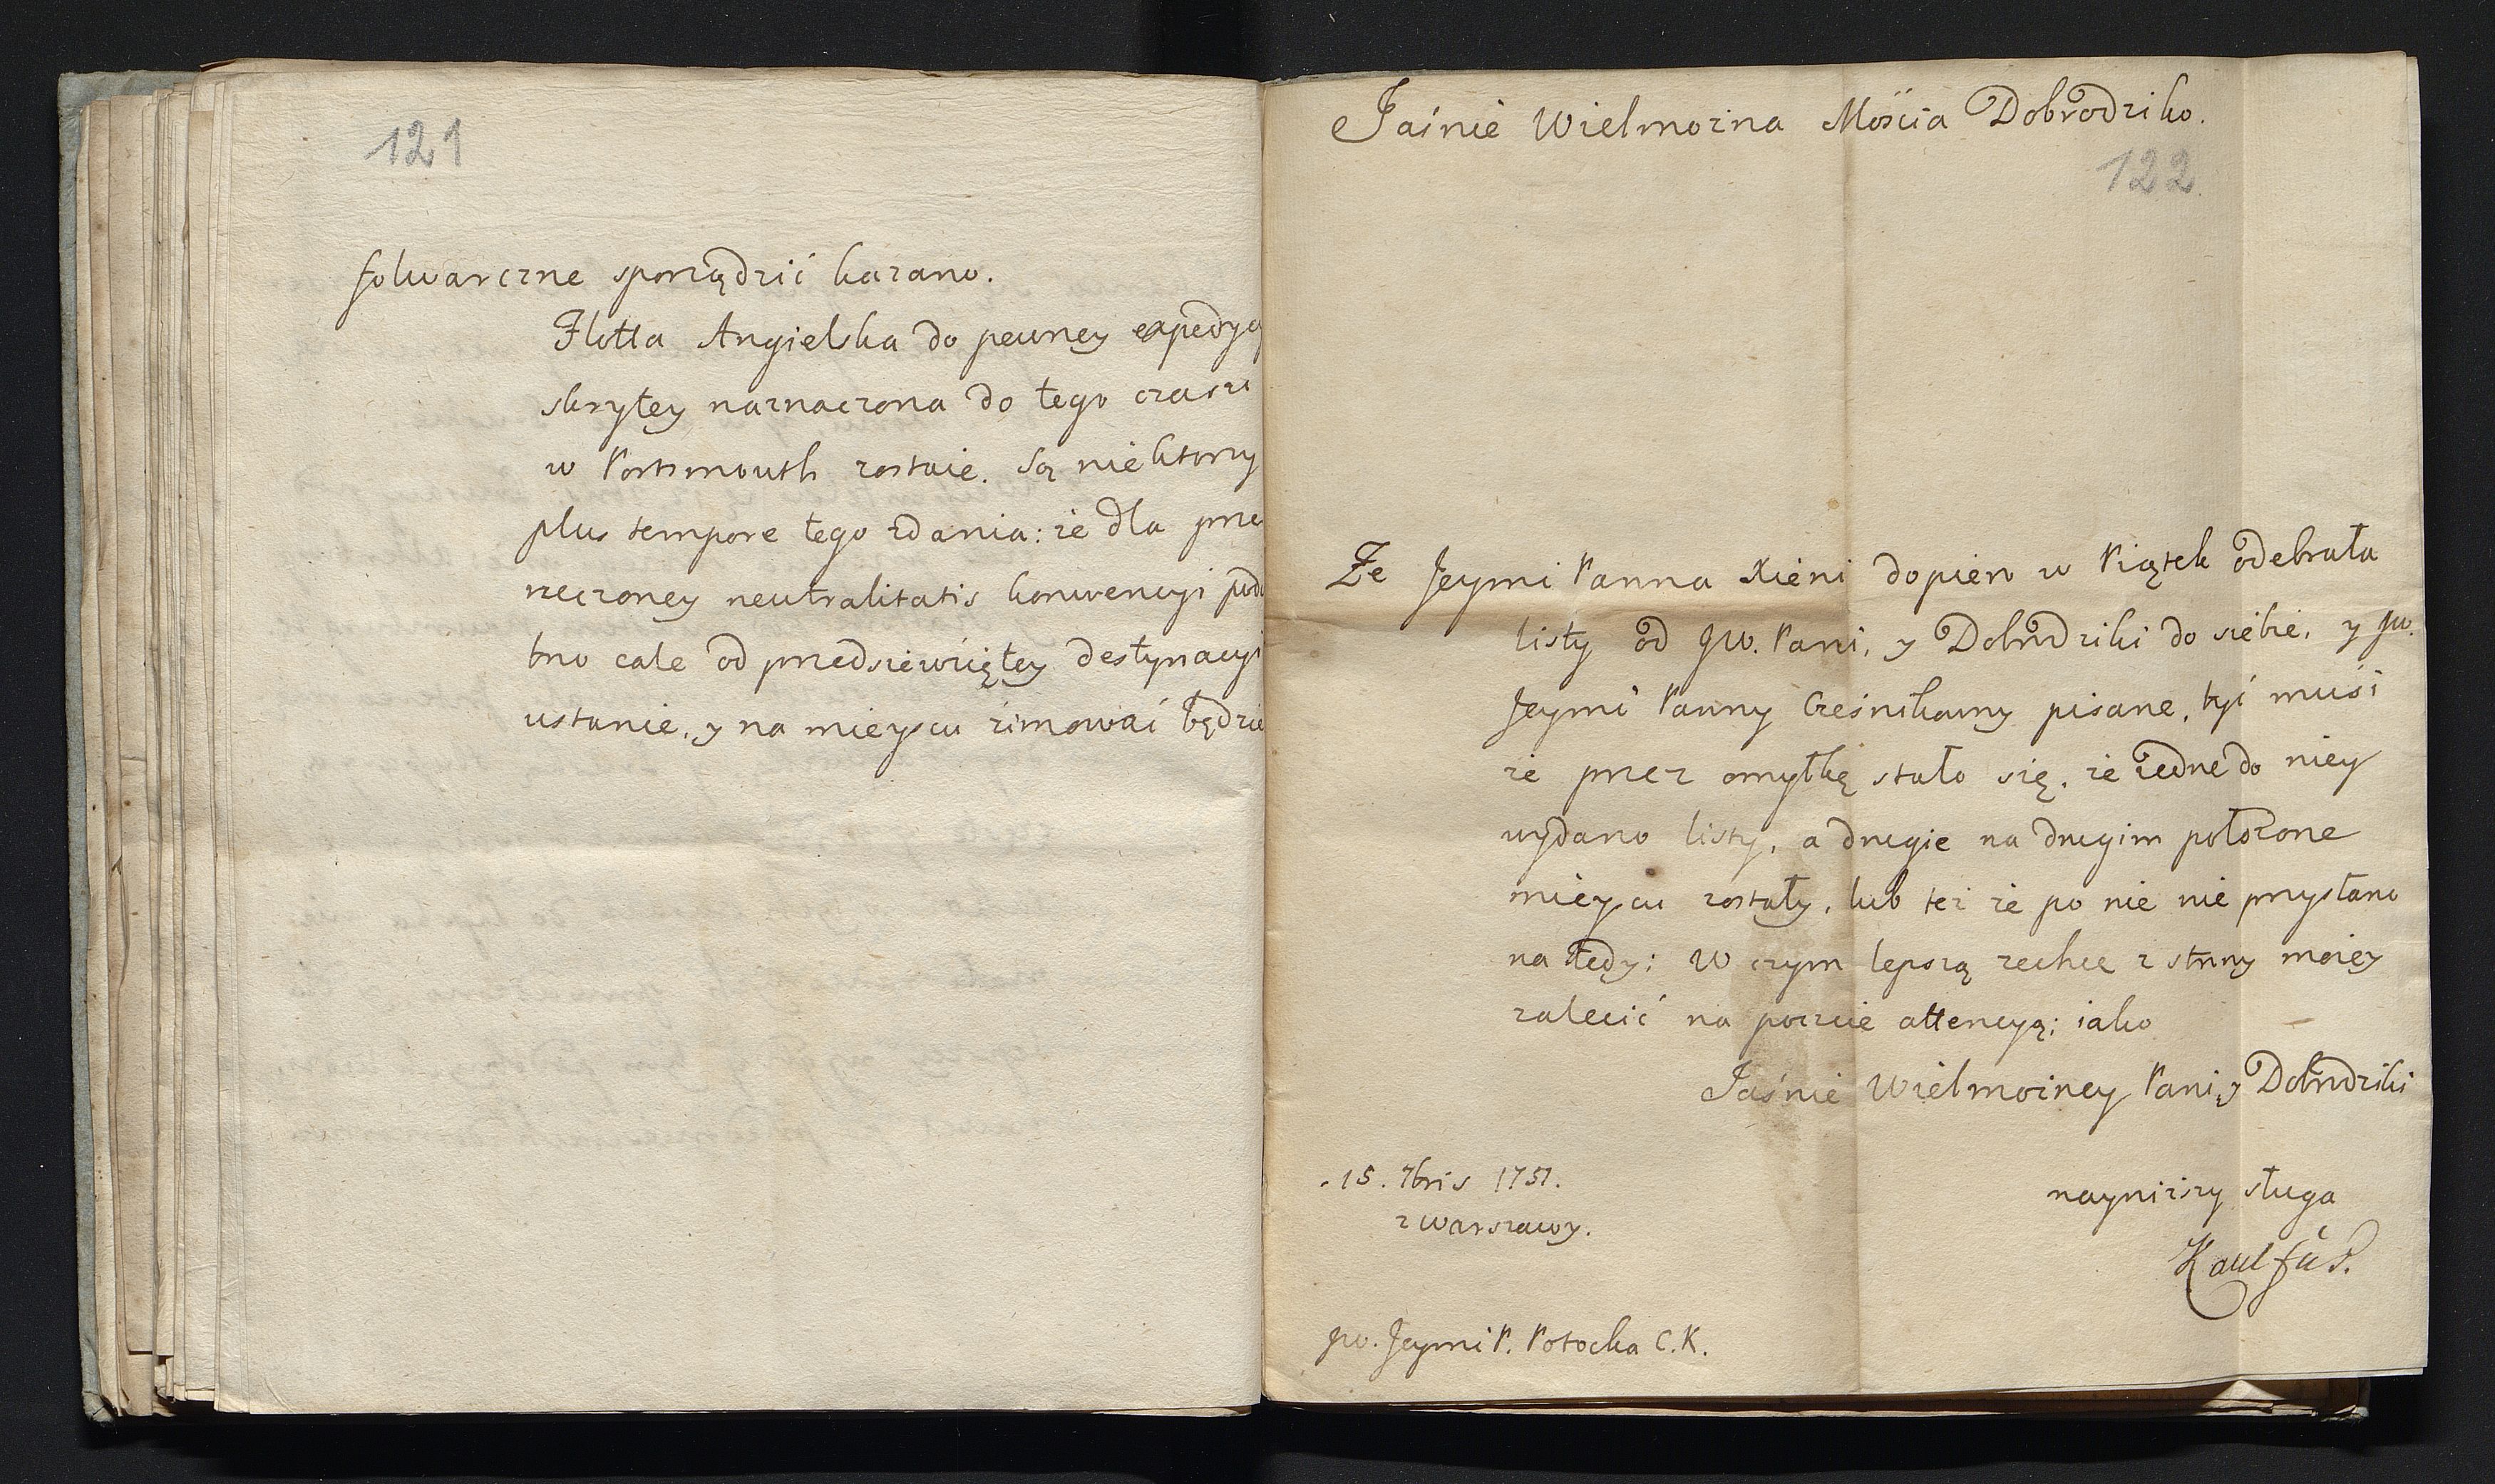 121
folwarczne sporządzić kazano.
Flotta Angielska do pewney expedycy
skrytey naznaczona do tego czasu
w Portsmouth zostaie. Są niektorzy
plus tempore tego zdania: że dla prze
rzeczoney neutralitatis konwencyi podo
bno cale od przedsięwziętey destynacyi
ustanie, y na mieyscu zimować będzie
Jaśnie Wielmożna Mościa Dobrodziko.
122
Że Jeymć Panna Xieni dopiero w Piątek odebrała
listy od JW. Pani, y Dobrodziki do siebie, y JW.
Jeymć Panny Cześnikowny pisane, być musi
że przez omyłkę stało się, że iedne do niey
wydano listy, a drugie na drugim położone
mieyscu zostały, lub też że po nie nie przysłano
na tedy; W czym lepszą zechcę z strony moiey
zalecić na poczcie attencyą; iako
Jaśnie Wielmożney Pani, y Dobrodziki
15. 7bris 1757.
z Warszawy.
nayniższy sługa
Kaulfus.
JW. Jeymć P. Potocka C. K.